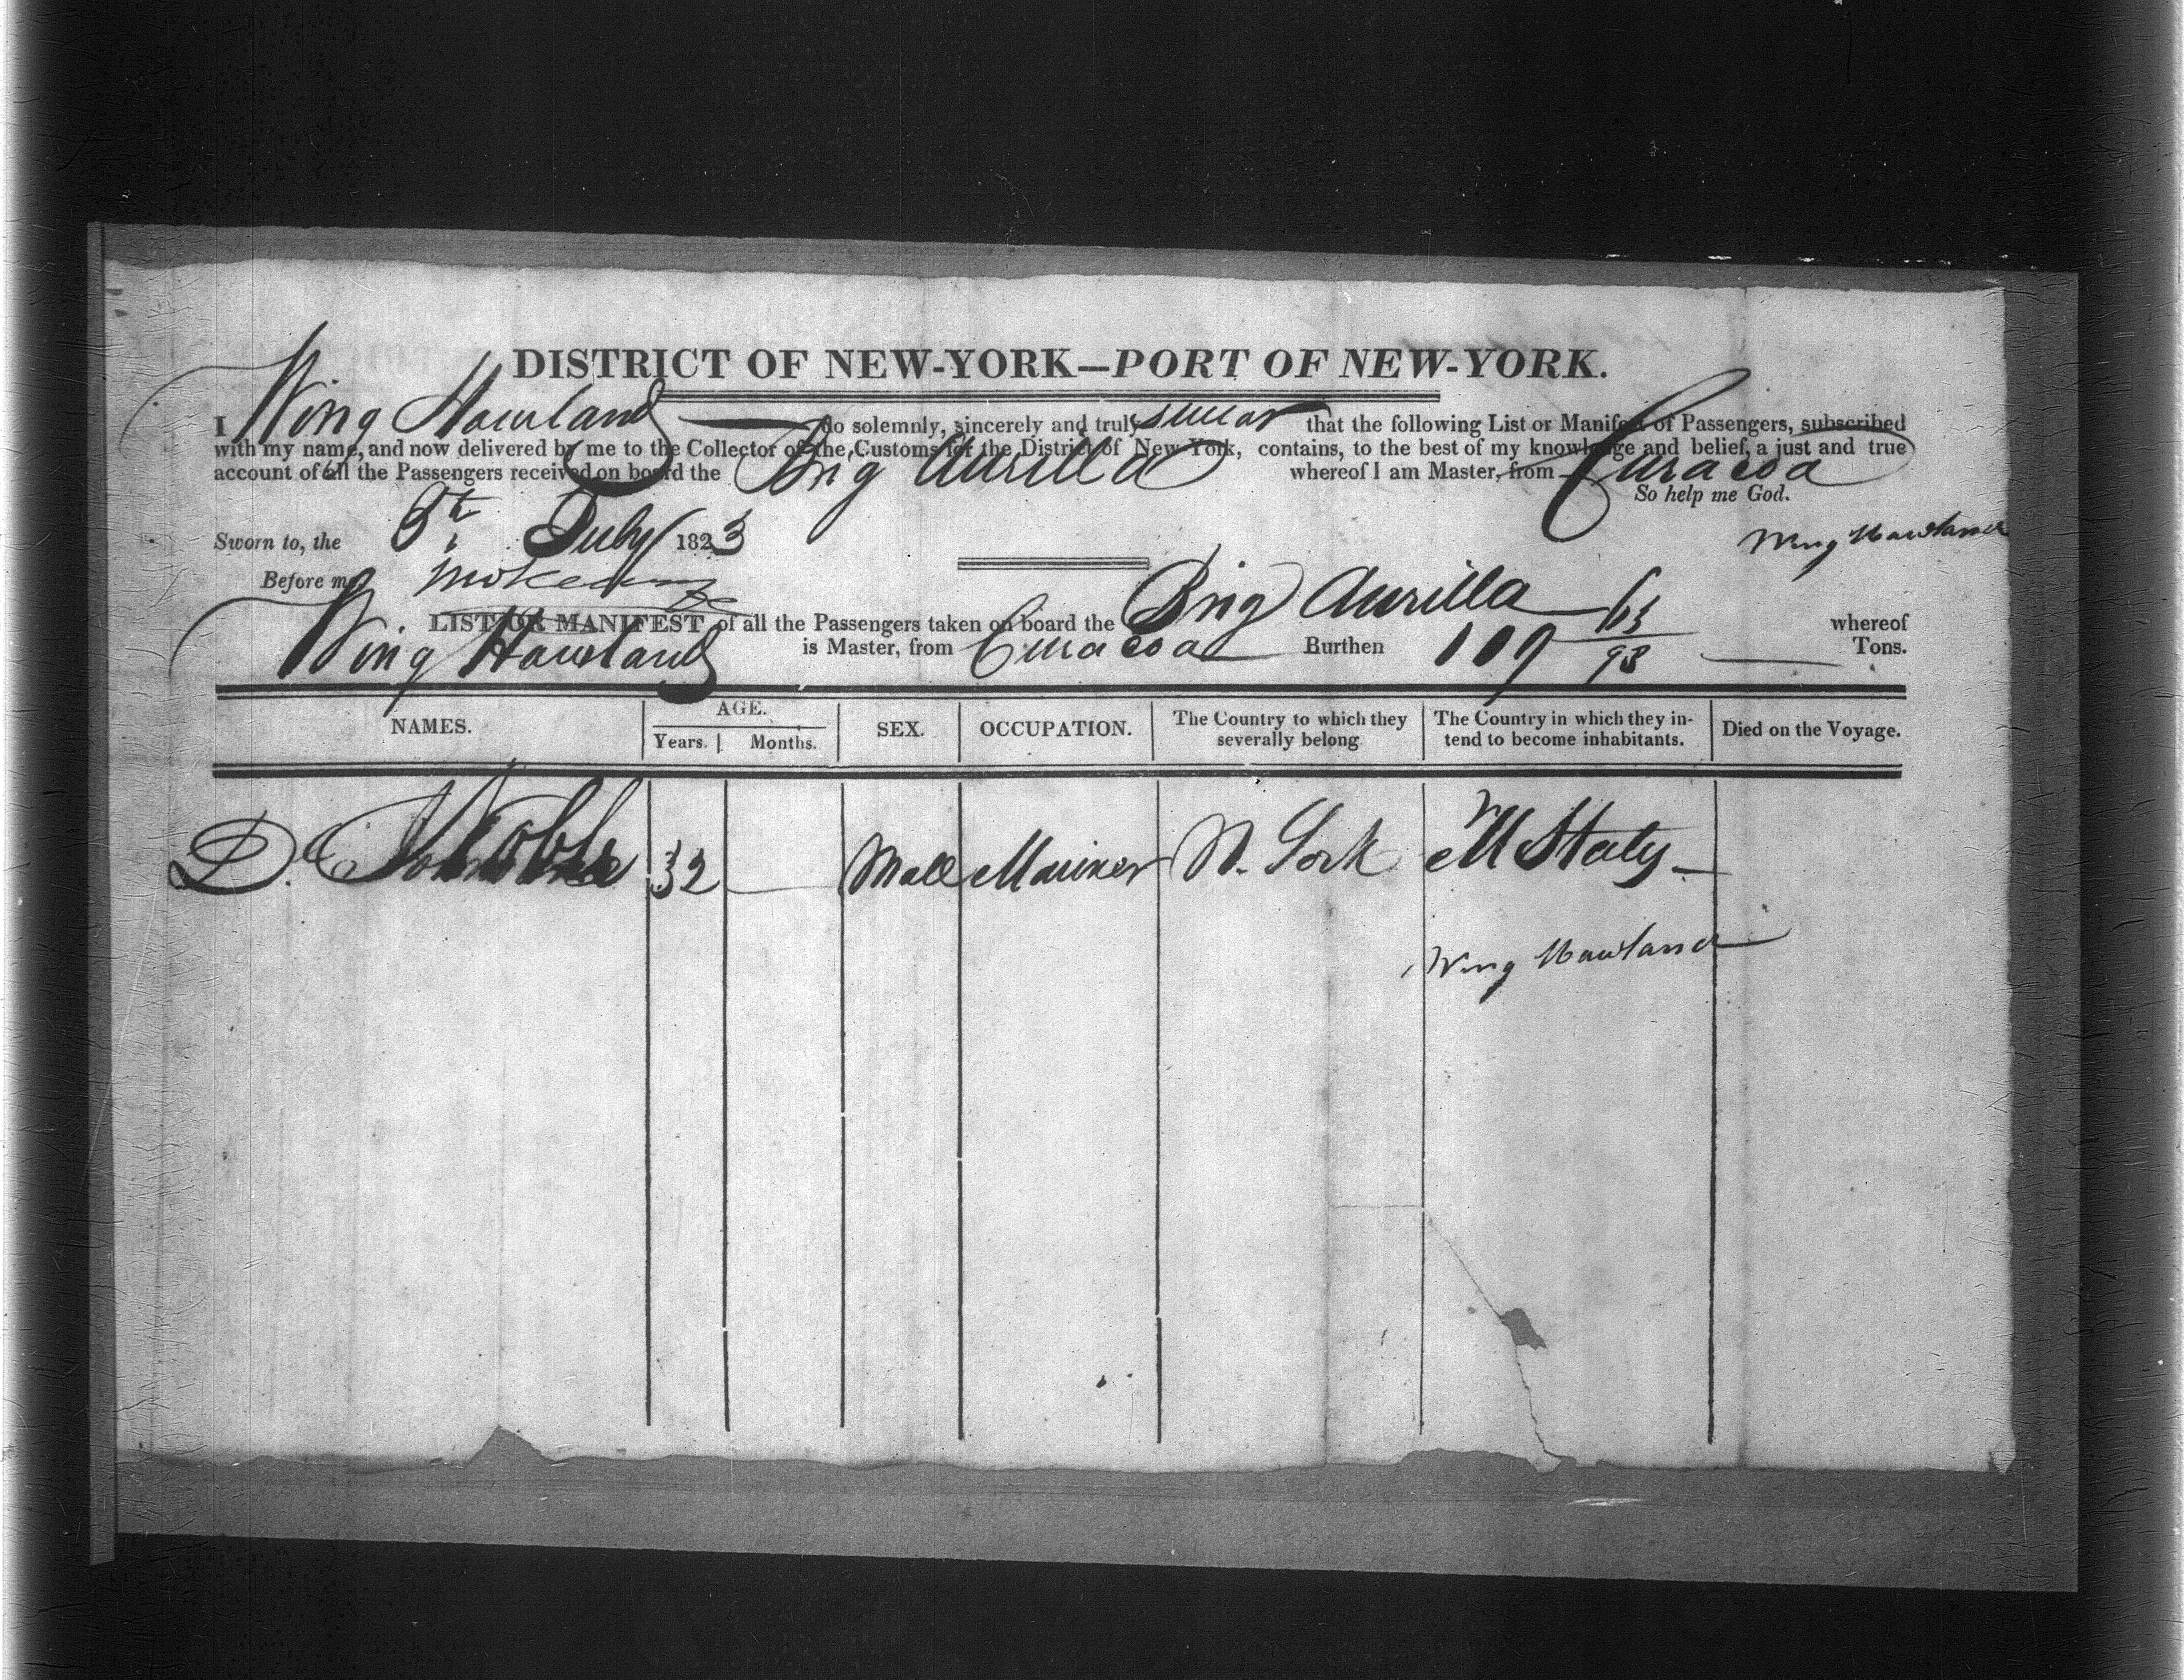 DISTRICT OF NEW-YORK—PORT OF NEW-YORK.
I Wing Howland do solemnly, sincerely and truly swear that the following List or Manifest of Passengers, subscribed
with my name, and now delivered by me to the Collector of the Customs for the District of New-York, contains, to the best of my knowledge and belief, a just and true
account of all the Passengers received on board the Brig Aurilla whereof I am Master, from Curacoa
So help me God.
Sworn to, the 8th July 1823 Wing Howland
Before me,
LIST OR MANIFEST of all the Passengers taken on board the Brig Aurilla whereof
Wing Howland is Master, from Curacoa Burthen 109 63/95 Tons.
NAMES. AGE. SEX. OCCUPATION. The Country to which they severally belong The Country in which they intend to become inhabitants. Died on the Voyage.
Years. Months.
D. 32 Male Mariner N. York U States
Wing Howland